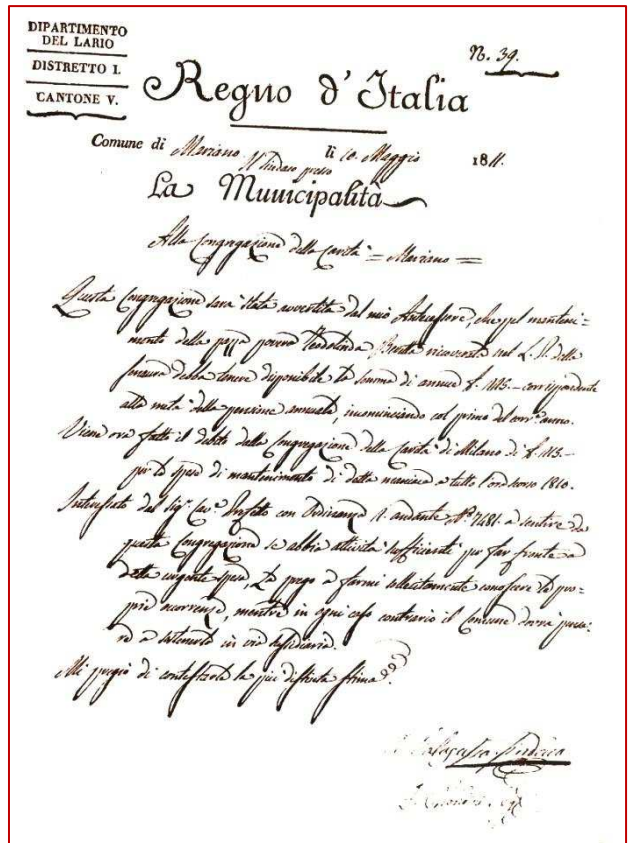 DIPARTIMENTO
DEL LARIO
DISTRETTO I.
CANTONE V.
N. 39.
Regno d'Italia
Comune di Mariano li 10. Maggio 1811.
Il Sindaco presso
La Municipalità
Alla Congregazione della Carità = Mariano =
Questa Congregazione sarà stata avvertita dal mio Antecessore, che pel manteni-
mento della pazza povera Teodolinda ricoverata nel L. P. della
Senavra debba tenere disponibile la somma di annue £. 113.- corrispondente
alla metà della pensione annuale, incominciando col primo del corr. anno.
Viene ora fatto il debito dalla Congregazione della Carità di Milano di £. 113.-
per le spese di mantenimento di detta maniaca a tutto l'or scorso 1810.
Interessato dal Sig. Cav. Prefetto con Ordinanza andante N. 7481. a sentire da
questa Congregazione se abbia attività sufficiente per far fronte a
detta urgente spesa, La prego a farmi sollecitamente conoscere le pro-
prie occorrenze, mentre in ogni caso contrario il Comune dovrà
a sostenerlo in via sussidiaria.
Mi pregio di contestarle la più distinta stima.